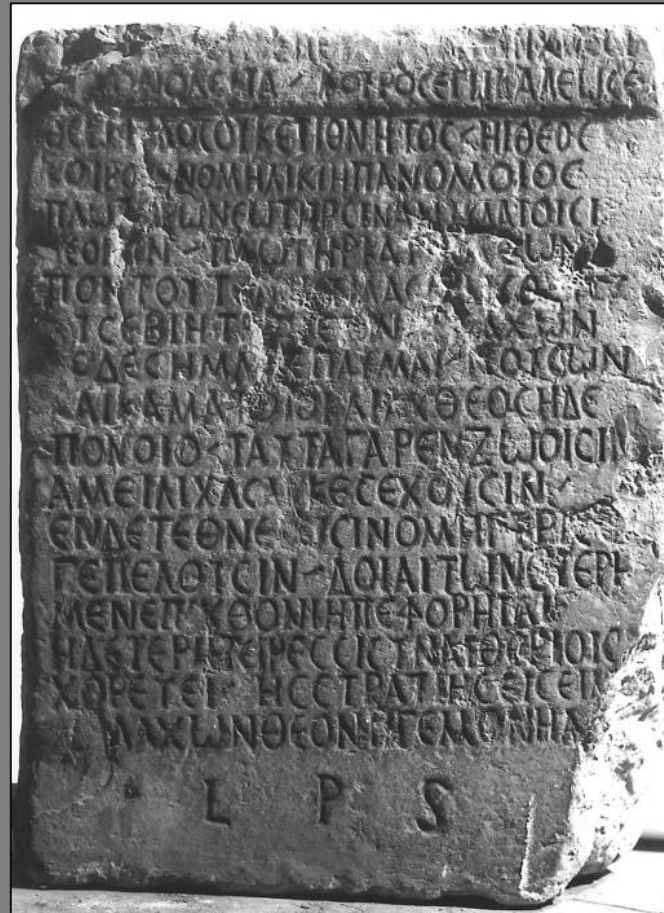 ΚΟΥΡΟΣΕΓΩΚΑΛΕΩΣΕ
ΘΕΩΦΙΛΟΣΟΥΚΕΤΙΘΝΗΤΟΣ ΗΙΘΕΟΣ
ΚΟΥΡΟΙΣΙΝΟΜΗΛΙΚΙΗΠΑΝΟΜΟΙΟΣ
ΠΛΩΤΗΡΩΝΣΩΤΗΡΣΙΝΑΜΥΚΛΑΙΟΙΣΙ
ΘΕΟΙΣΙΝ ΠΛΩΤΗΡΚΑΥΤΟΣΕΩΝ
ΠΟΝΤΟΥ
ΕΥΣΕΒΙΗΤΡΟΦΕΩΝ ΛΑΧΩΝ
ΤΟΔΕΣΗΜΑΠΕΠΑΥΜΑΙΝΟΥΣΩΝ
ΚΑΙΚΑΜΑΤΟΙΟΚΑΙΑΧΘΕΟΣΗΔΕ
ΠΟΝΟΙΟ ΤΑΥΤΑΓΑΡΕΝΖΩΟΙΣΙΝ
ΑΜΕΙΛΙΧΑΣΑΡΚΕΣΕΧΟΥΣΙΝ
ΕΝΔΕΤΕΘΝΕΙΟΙΣΙΝΟΜΗΓΥΡΙΕΣ
ΓΕΠΕΛΟΥΣΙΝ ΔΟΙΑΙΤΩΝΕΤΕΡΗ
ΜΕΝΕΠΙΧΘΟΝΙΗΠΕΦΟΡΗΤΑΙ
ΗΔΕΤΕΡΗΤΕΙΡΕΣΣΙΣΥΝΑΙΘΕΡΙΟΙΣΙ
ΧΟΡΕΥΕΙ ΗΣΣΤΡΑΤΙΗΣΕΙΣΕΙΜΙ
ΛΑΧΩΝΘΕΟΝΗΓΕΜΟΝΗΑ
L P S